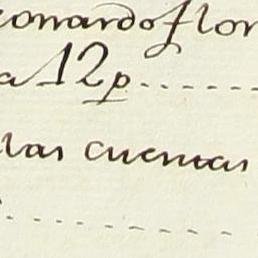 eonardo flor
a 12p.
las cuentas